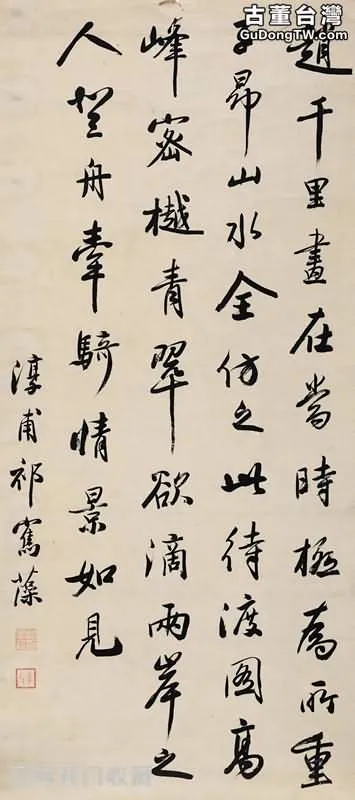 趙千里畫在當時極為所重
子昂山水全仿之此待渡图高
峰密樾青翠欲滴兩岸之
人登舟牽騎晴景如見
淳甫祁寯藻
古董台灣
GuDongTW.com